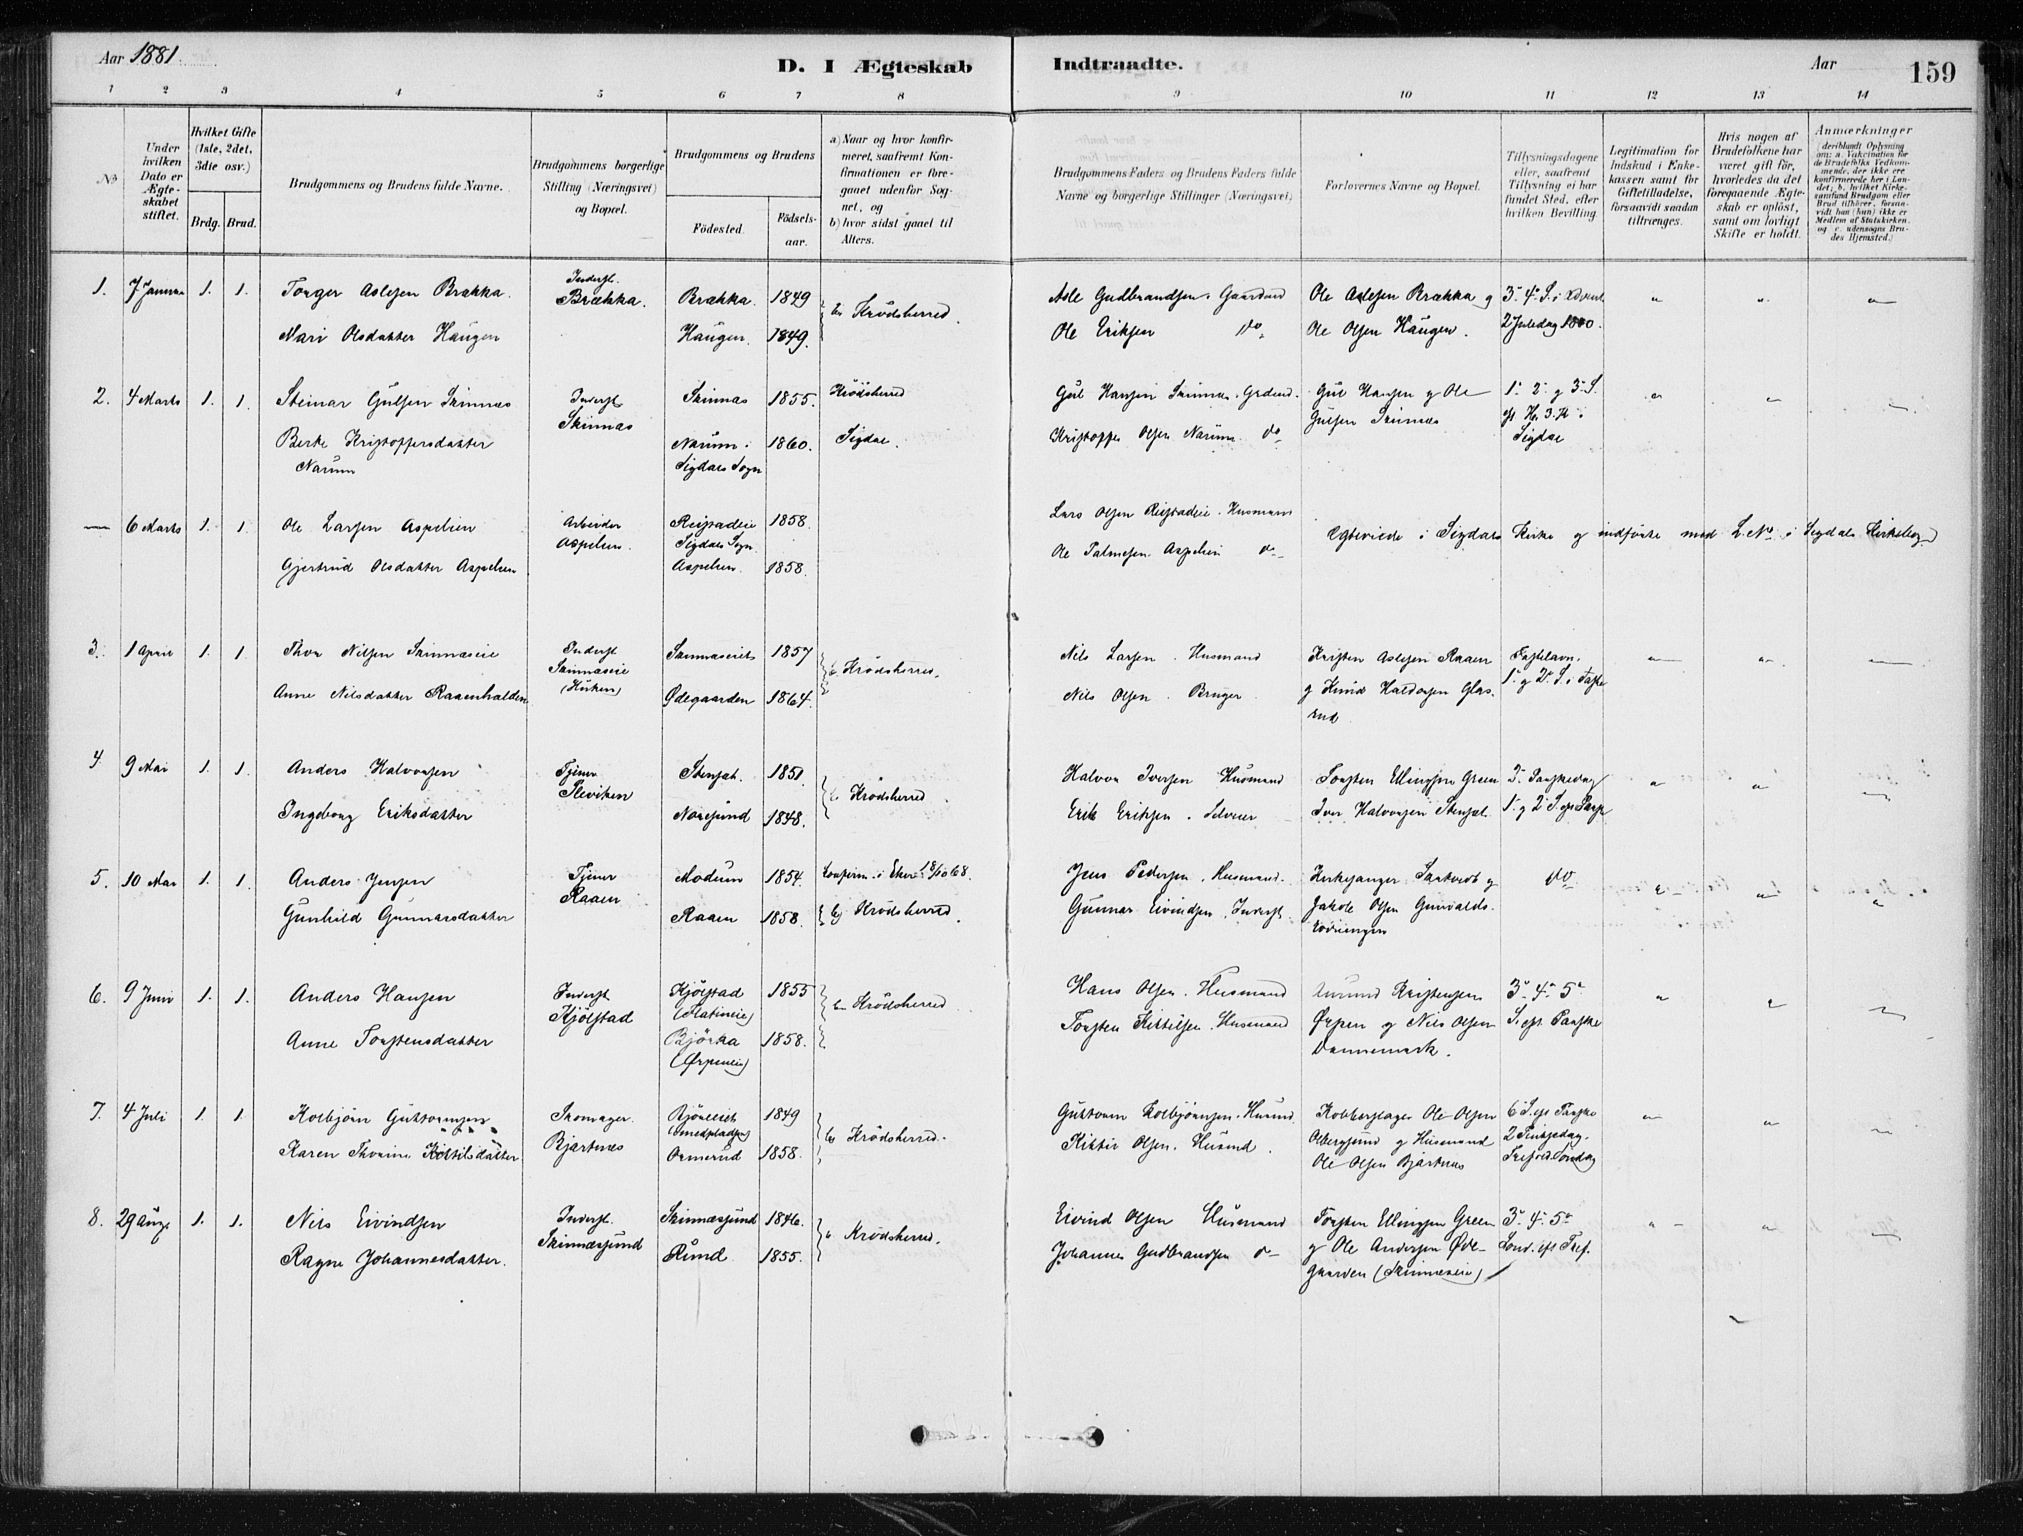 Aar 1881
D. I Ægteskab Indtraadte.
Aar 159
1 2 3 4 5 6 7 8 9 10 11 12 13 14
No
Under hvilken Dato er Ægteskabet stiftet.
Hvilket Gifte (1ste, 2det, 3die osv.)
Brdg. Brud.
Brudgommens og Brudens fulde Navne.
Brudgommens borgerlige Stilling (Næringsvei) og Bopæl.
Brudgommens og Brudens
Fødested. Fødselsaar.
a) Naar og hvor konfirmeret, saafremt Konfirmationen er foregaaet udenfor Sognet, og
b) hvor sidst gaaet til Alters.
Brudgommens Faders og Brudens Faders fulde Navne og borgerlige Stillinger (Næringsvei)
Forlovernes Navne og Bopæl.
Tillysningsdagene eller, saafremt Tillysning ei har fundet Sted, efter hvilken Bevilling.
Legitimation for Indskud i Enkekassen samt for Giftetilladelse, forsaavidt saadan tiltrænges.
Hvis nogen af Brudefolkene har været gift før, hvorledes da det foregaaende Ægteskab er opløst, samt om lovligt Skifte er holdt.
Anmærkninger (deriblandt Oplysning om: a. Vakcination for de Brudefolks Vedkommende, der ikke ere konfirmerede her i Landet; b. hvilket Kirkesamfund Brudgom eller Brud tilhører, forsaavidt han (hun) ikke er Medlem af Statskirken, og c. udensogns Brudes Hjemsted.)
1. 7 Januar 1. 1. Torger Aslesen Brækka. Inderst. Brækka. Brækka. 1849 b. Krødsherred. Asle Gudbrandsen. Gaardmd Ole Aslesen Brækka og 3' 4' S. i Advent
Mari Olsdatter Haugen Haugen. 1849. Ole Eriksen do Ole Olsen Haugen. 2 Juledag 1880.
2. 4 Marts 1. 1. Steinar Gulsen Skinnæs Inderst Skinnæs Skinnæs 1855. Krødsherred Gul Hansen Skinnæs. Grdmd. Gul Hansen og Ole 1' 2' og 3' S.
Berte Kristoffersdatter Narum 1860. Sigdal. Kristoffer Olsen Narum do Gulsen Skinnæs
Narum Sigdals Sogn Sigdal
— 6 Marts 1. 1. Ole Larsen Aspelien Arbeider Aspelien. Reistadeie 1858. Lars Olsen Reistadeie. Husmand
Sigdals Sogn. Ægteviede i Sigdals Kirke og indførte med L. No i Sigdals Kirkebog
Gjertrud Olsdatter Aspelien Aspelien. 1858. Ole Palmesen Aspelien do
3. 1 April 1. 1. Thor Nilsen Skinnæseie Inderst Skinnæseie 1857 b. Krødsherred. Nils Larsen. Husmand Kristen Aslesen Raaen Fastelavn.
Anne Nilsdatter Raaenhalden Ødegaarden 1864. Nils Olsen. Bruger. og Knud Haldorsen Glesrud 1' og 2' S. i Faste
4 9 Mai 1. 1. Anders Halvorsen Tjener Sleviken 1851. b. Krødsherred Halvor Iversen Husmand Torsten Ellingsen Green 2' Paaskedag
Ingeborg Eriksdatter Noresund 1848. Erik Eriksen. Iver Halvorsen 1' og 2' S. eft. Paaske
5. 10 Mai 1. 1. Anders Jensen Tjener Raaen Modum 1854. Konfirm. i Eker 68. Jens Pedersen. Husmand. Kirkesanger og do
Gunhild Gunnarsdatter Raaen 1858. b) Krødsherred. Gunnar Eivindsen. Inderst Jakob Olsen
6. 9 Juni 1. 1. Anders Hansen Inderst Kjølstad Kjølstad 1855 b. Krødsherred Hans Olsen. Husmand Kristensen 3' 4' 5'
Anne Torstensdatter Bjørka 1858. Torsten Kittilsen. Husmand Ørpen og Nils Olsen S. eft. Paaske
(Ørpeneie) Dannemark.
7. 4 Juli 1. 1. Kolbjørn Guttormsen Skomager. Bjærtnæs 1849 b. Krødsherred. Guttorm Kolbjørnsen. Ole Olsen 6 S. eft Paaske
Karen Thorine Kittilsdatter Ormerud 1858. Kittil Olsen. og Husmand 2 Pinsedag.
Ole Olsen Bjærtnæs Trefold. Søndag
8. 29 Aug. 1. 1. Nils Eivindsen Inderst. Skinnæssund Skinnæssund 1846. b Krødsherred. Eivind Olsen Husmand Torsten Ellingsen Green 3' 4' 5'
Ragne Johannesdatter. Rund. 1855. Johannes Gudbrandsen do og Ole Andersen Ødegaarden (Skinnæseie) Sønd. eft Tref.